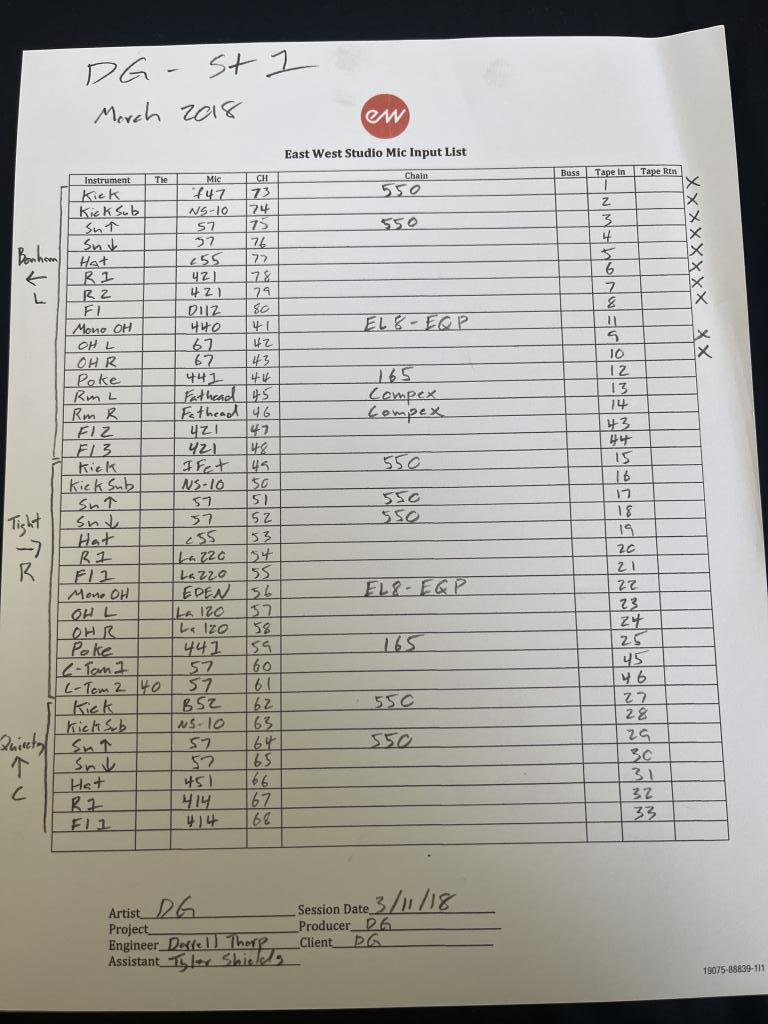 DG - St 1
March 2018
ew
East West Studio Mic Input List
Instrument Tie Mic CH Chain Buss Tape In Tape Rtn
Kick f47 73 550 1 X
Kick Sub NS-10 74 2 X
Sn ↑ 57 75 550 3 X
Sn ↓ 57 76 4 X
Hat c55 77 5 X
R 1 421 78 6 X
R 2 421 79 7 X
Fl D112 80 8 X
Mono OH 440 41 EL8-EQP 11
OH L 67 42 9 X
OH R 67 43 10 X
Poke 441 44 165 12
Rm L Fathead 45 Compex 13
Rm R Fathead 46 Compex 14
Fl 2 421 47 43
Fl 3 421 48 44
Bonham
←
L
Kick IFet 49 550 15
Kick Sub NS-10 50 16
Sn ↑ 57 51 550 17
Sn ↓ 57 52 550 18
Hat c55 53 19
R 1 La220 54 20
Fl 1 La220 55 21
Mono OH EDEN 56 EL8-EQP 22
OH L La 120 57 23
OH R La 120 58 24
Poke 441 59 165 25
C-Tom 1 57 60 45
C-Tom 2 40 57 61 46
Tight
→
R
Kick B52 62 550 27
Kick Sub NS-10 63 28
Sn ↑ 57 64 550 29
Sn ↓ 57 65 30
Hat 451 66 31
R 1 414 67 32
Fl 1 414 68 33
↑
C
Artist DG Session Date 3/11/18
Project Producer DG
Engineer Darrell Thorp Client DG
Assistant Tyler Shields
19075-88839-1I1